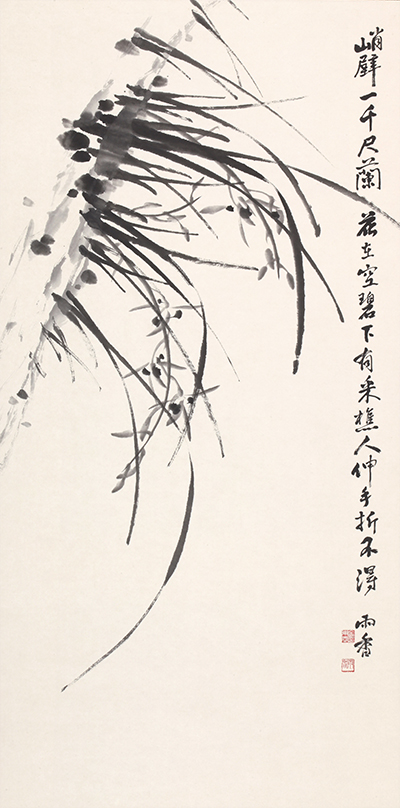 峭壁一千尺蘭花在空碧下有采樵人伸手折不得
雨香